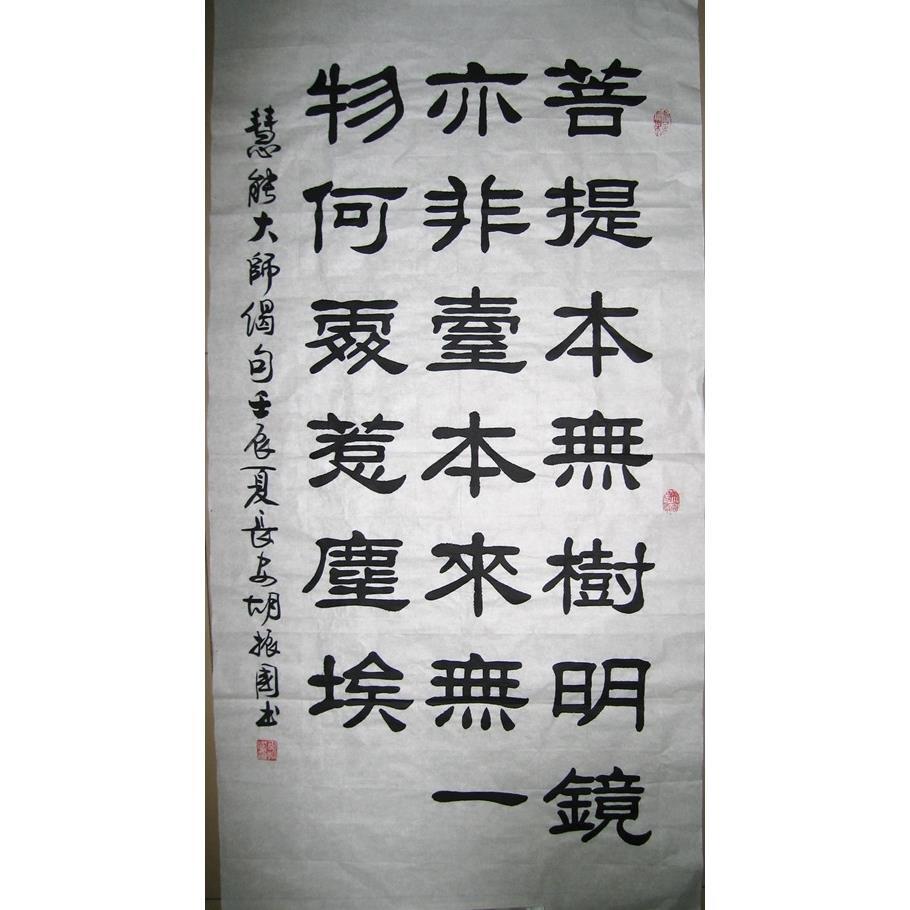 菩提本無樹明鏡
亦非臺本來無一
物何處惹塵埃
慧能大師偈句壬辰夏長安胡振國书